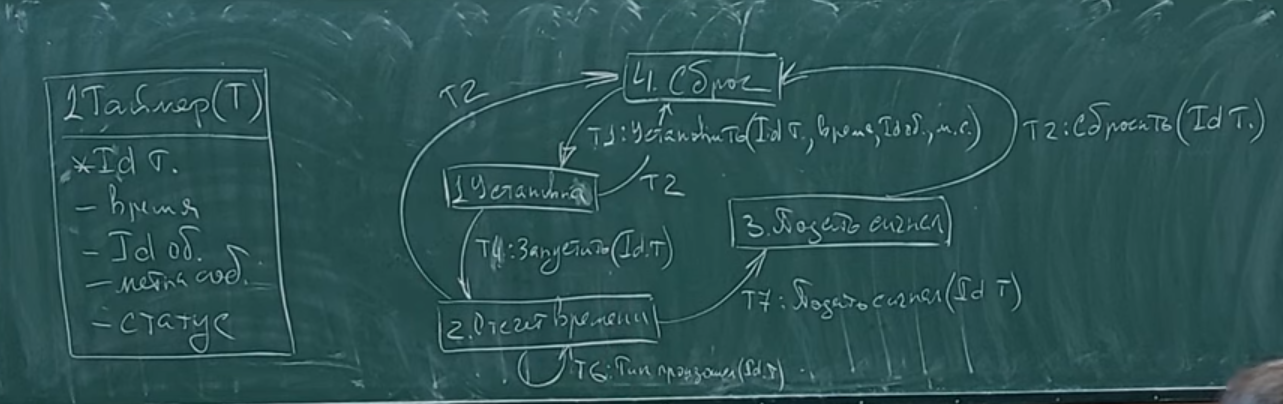 1 Таймер(Т)
* Id т.
- время
- Id об.
- метка соб.
- статус
Т2
4. Сброс
Т1: Установить(Id т., время, Id об., м.с.)
Т2: Сбросить(Id т.)
1 Установка
Т2
3. Подать сигнал
Т4: Запустить(Id.Т)
Т7: Подать сигнал(Id Т)
2. Отсчет времени
Т6: Тик произошел(Id.Т)